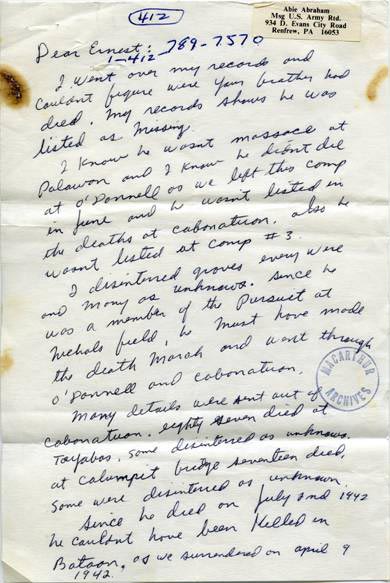 412
Abie Abraham
Msg U.S. Army Rtd.
934 D. Evans City Road
Renfrew, PA 16053
Dear Ernest:
1-412 789-7570
I went over my records and
couldnt figure were your brother had
died. My records shows he was
listed as missing.
I know he wasnt massace at
Palawon and I know he didnt die
at O'Donnell as we left this camp
in June and he wasn't listed in
the deaths at cabonatuon, also he
wasnt listed at comp #3.
I disinterred graves every were
and many as unknowns. since he
was a member of the Pursuit at
Nichols field, he must have made
the death March and went through
O'Donnell and cabonatuon.
Many details were sent out of
cabonatuon. eighty seven died at
Tayabas, some disinterred as unknowns.
at calumpit bridge seventeen died,
some were disinterred as unknown.
since he died on July 2nd 1942
he couldnt have been killed in
Bataan, as we surrendered on april 9
1942.
MACARTHUR
ARCHIVES